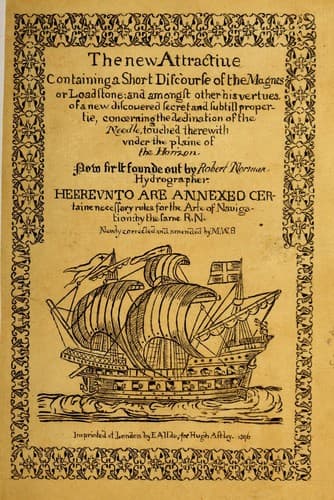 The new Attractiue
Containing a Short Discourse of the Magnes
or Loadstone: and amongst other his vertues
of a new discouered secret and subtill proper-
tie, concerning the declination of the
Needle, touched therewith
vnder the plaine of
the Horizon.
Now first founde out by Robert Norman
Hydrographer.
HEEREVNTO ARE ANNEXED CER-
taine necessary rules for the Arte of Nauiga-
tion: by the same R. N.
Newly corrected and amended by M. W. B
Imprinted at London by E Allde, for Hugh Astley. 1596